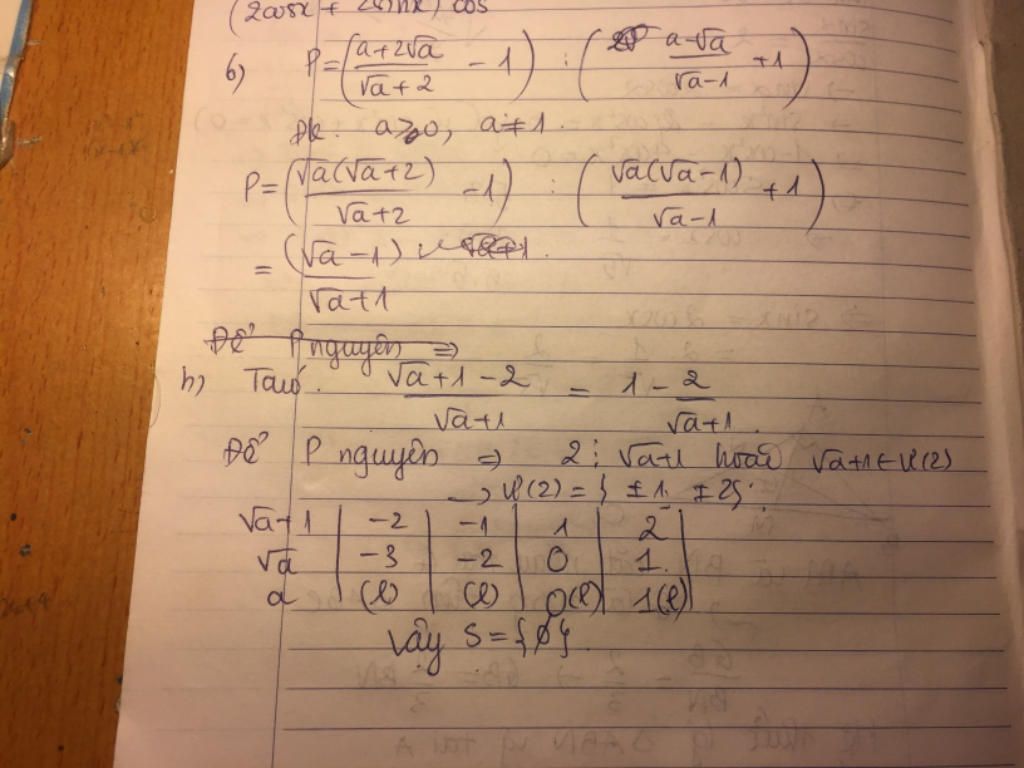 (2cosx + 2sinx) cos
6) P = ((a+2√a)/(√a+2) - 1) : ((a-√a)/(√a-1) + 1)
Đk: a≥0, a≠1.
P = (√a(√a+2)/(√a+2) - 1) : (√a(√a-1)/(√a-1) + 1)
= (√a-1)/(√a+1)
Để P nguyên ⇒
b) Ta có. (√a+1-2)/(√a+1) = 1 - 2/(√a+1).
Để P nguyên ⇒ 2 ⋮ √a+1 hoặc √a+1 ∈ Ư(2)
→ Ư(2) = { ±1. ±2}.
√a+1 | -2 | -1 | 1 | 2
√a | -3 | -2 | 0 | 1.
a | (l) | (l) | 0(l) | 1(l)
Vậy S = {∅}.